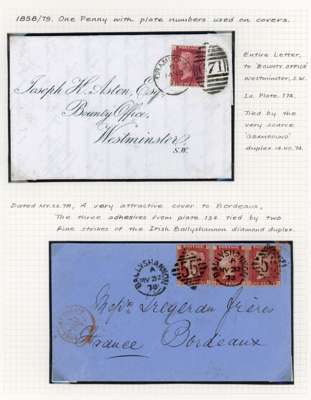 1858/79. One Penny with plate numbers used on covers.
Entire Letter,
to 'Bounty Office'
Westminster, S.W.
1d. Plate.
Tied by
the very
scarce
duplex
Joseph H. Aston, Esq
Bounty Office,
Westminster
S.W.
71
A very attractive cover to Bordeaux,
The three adhesives from plate tied by two
fine strikes of the Irish Ballyshannon diamond duplex.
BALLYSHANNON
A
78
55
BALLYSHANNON
55
Frères
France Bordeaux